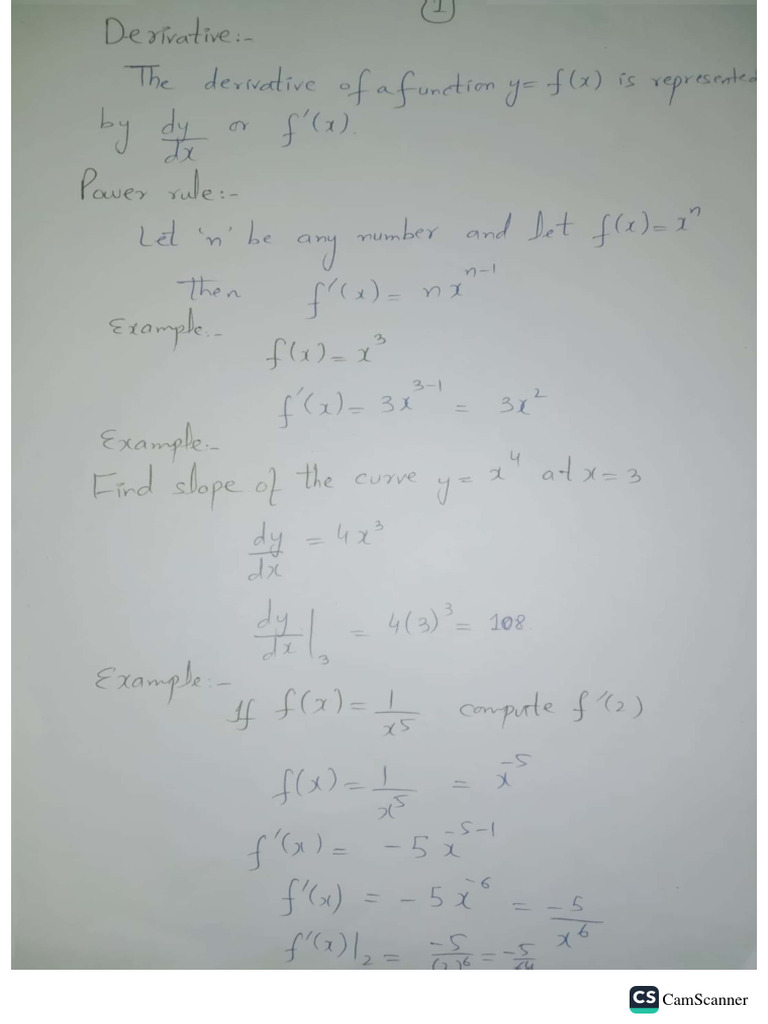 1
Derivative:-
The derivative of a function y = f(x) is represented
by dy/dx or f'(x).
Power rule:-
Let 'n' be any number and let f(x) = x^n
Then f'(x) = nx^{n-1}
Example:-
f(x) = x^3
f'(x) = 3x^{3-1} = 3x^2
Example:-
Find slope of the curve y = x^4 at x = 3
dy/dx = 4x^3
dy/dx|_3 = 4(3)^3 = 108
Example:-
If f(x) = 1/x^5 compute f'(2)
f(x) = 1/x^5 = x^{-5}
f'(x) = -5x^{-5-1}
f'(x) = -5x^{-6} = -5/x^6
f'(x)|_2 = -5/(2)^6 = -5/64
CS CamScanner